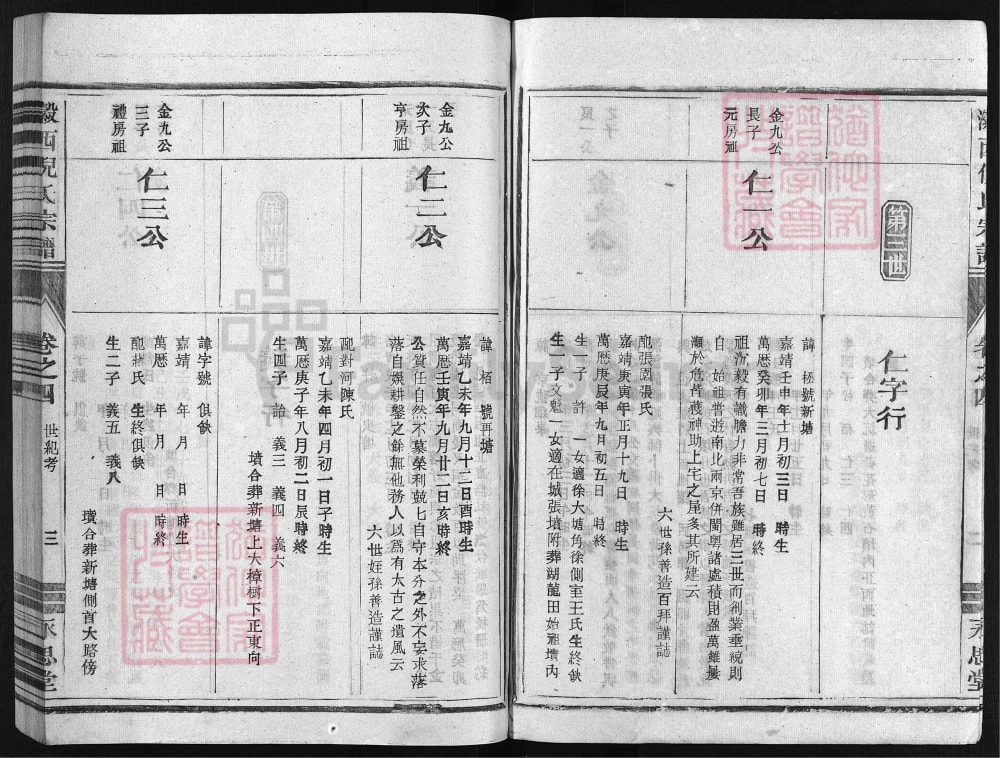 第三世
仁字行
金九公
長子
元房祖
仁一公
諱 號新塘
嘉靖壬申年十一月初三日 時生
萬歷癸卯年三月初七日 時終
祖沉毅有識膽力非常吾族雖居三世而創業垂規則
自 始祖曾遊南北兩京併閩粤諸處積財盈萬雖屢
瀕於危皆獲神助上宅之屋多其所建云
六世孫善造百拜謹誌
配張園張氏
嘉靖庚寅年正月十九日 時生
萬歷庚辰年九月初五日 時終
生一子 許 一女適徐大塘角徐側室王氏生終缺
生一子文魁一女適在城張墳附葬湖龍田始祖墳內
金九公
次子
亨房祖
仁二公
諱栢 號再塘
嘉靖乙未年九月十二日酉時生
萬歷壬寅年九月廿三日亥時終
公質任自然不慕榮利兢匕自守本分之外不妄求落
落自娛耕鑿之餘無他務人以爲有太古之遺風云
六世姪孫善造謹誌
配對河陳氏
嘉靖乙未年四月初一日子時生
萬歷庚子年八月初二日辰時終
生四子 詒 義三 義四 義六
墳合葬新塘上大樟樹下正東向
金九公
三子
禮房祖
仁三公
諱字號 俱缺
嘉靖 年 月 日 時生
萬歷 年 月 日 時終
配 氏 生終俱缺
生二子 義五 義八
墳合葬新塘側首大路傍
瀫西倪氏宗譜
卷之四
世紀考
三
永思堂